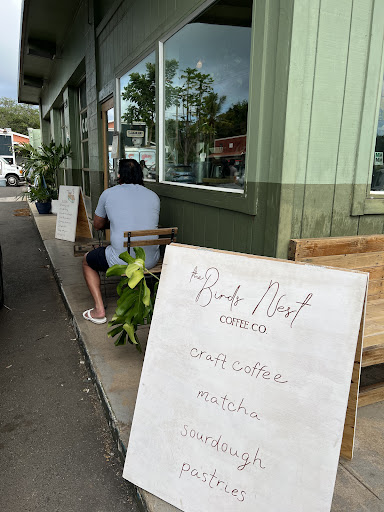 the
Birds Nest
COFFEE CO.
craft coffee
matcha
sourdough
pastries